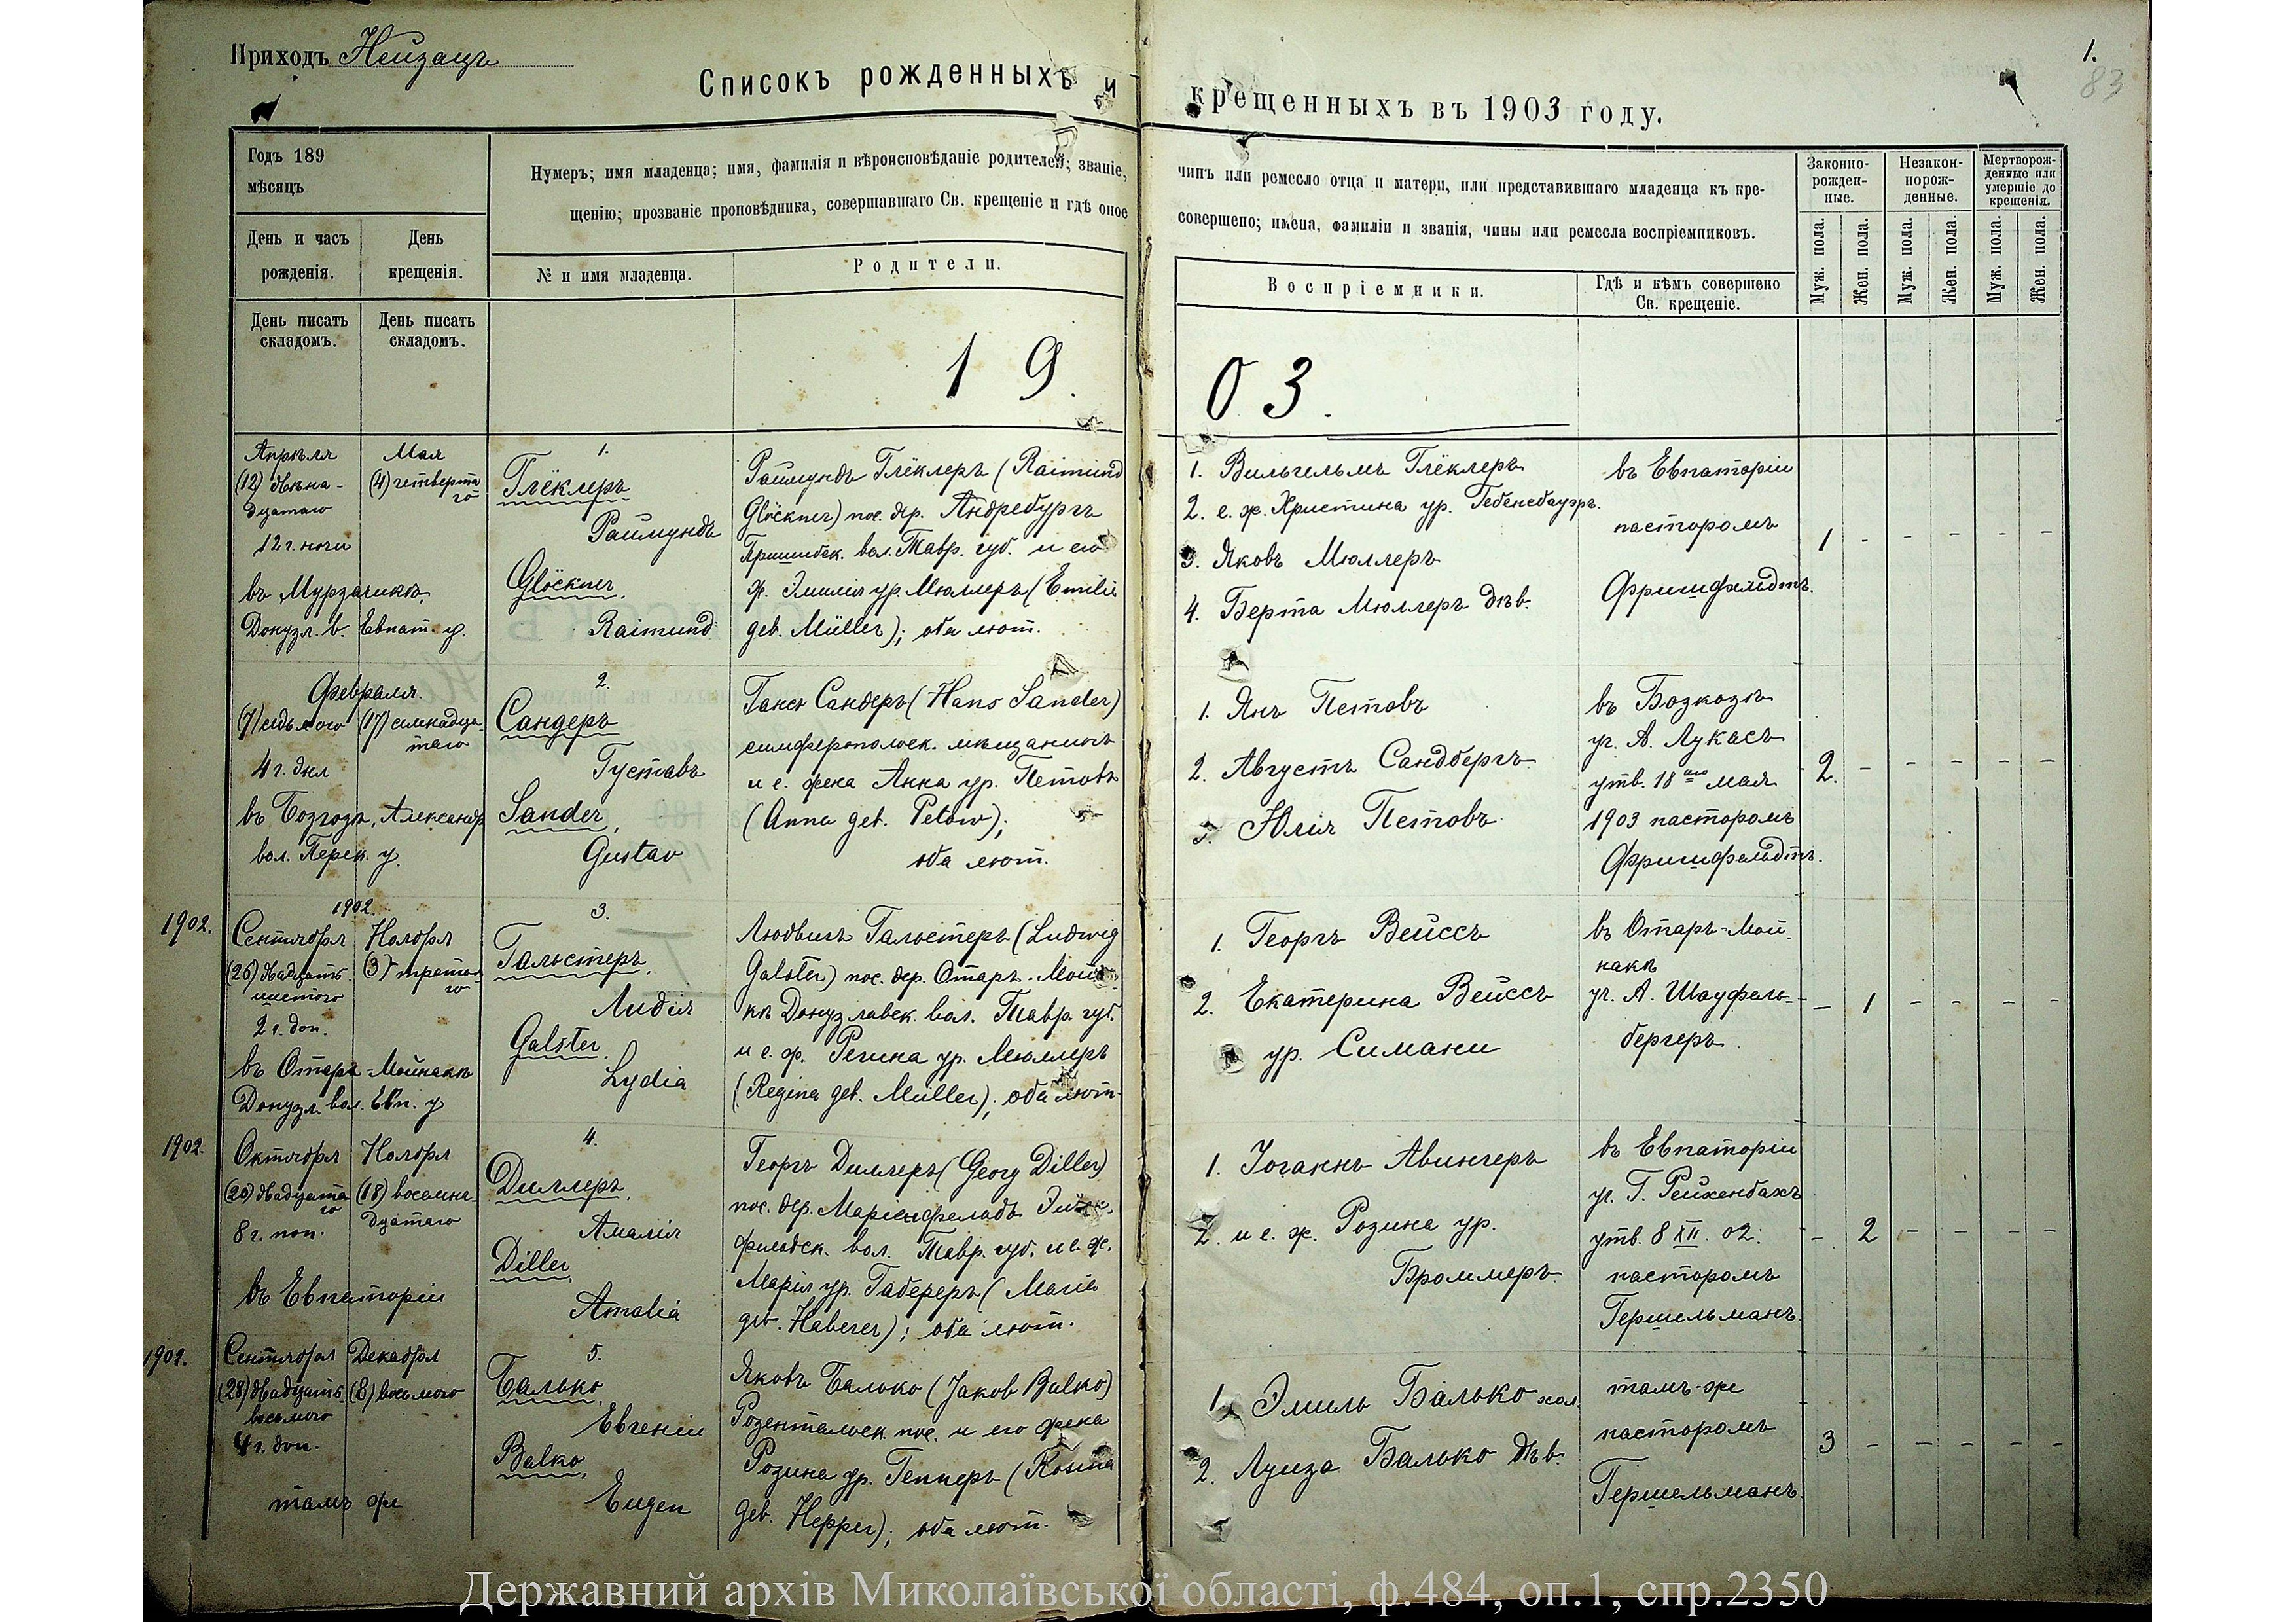 Приходъ Нейзацъ
1.
83
Списокъ рожденныхъ и крещенныхъ въ 1903 году.
Годъ 189
мѣсяцъ
День и часъ рожденія.
День крещенія.
Нумеръ; имя младенца; имя, фамилія и вѣроисповѣданіе родителей; званіе,
чинъ или ремесло отца и матери, или представившаго младенца къ кре-
щенію; прозваніе проповѣдника, совершавшаго Св. крещеніе и гдѣ оное
совершено; имена, фамиліи и званія, чины или ремесла воспріемниковъ.
№ и имя младенца.
Родители.
Воспріемники.
Гдѣ и кѣмъ совершено
Св. крещеніе.
Законно-
рожден-
ные.
Незакон-
порож-
денные.
Мертворож-
денные или
умершіе до
крещенія.
Муж. пола.
Жен. пола.
Муж. пола.
Жен. пола.
Муж. пола.
Жен. пола.
День писать
складомъ.
День писать
складомъ.
19
03.
Апрѣля
(12) двѣна-
дцатаго
12 г. ночи
Мая
(4) четверта
го
въ Мурзачикѣ,
Донузл. в. Евпат. у.
1.
Глёклеръ
Раймундъ
Glöckner,
Raimund
Раймундъ Глёклеръ (Raimund
Glöckner) пос. дер. Андребургъ
Пришибск. вол. Тавр. губ. и его
ж. Эмилія ур. Мюллеръ (Emilie
geb. Müller); оба лют.
1. Вильгельмъ Глёклеръ
2. е. ж. Христина ур. Гебенсбауэръ.
3. Яковъ Мюллеръ
4. Берта Мюллеръ дѣв.
въ Евпаторіи
пасторомъ
Фришфельдтъ.
1 - - - - -
Февраля.
(7) седьмого
4 г. дня
(17) семнадца-
таго
въ Бозгозъ, Александр
вол. Перек. у.
2.
Сандеръ
Густавъ
Sander,
Gustav
Гансъ Сандеръ (Hans Sander)
симферопольск. мѣщанинъ
и е. жена Анна ур. Петовъ
(Anna geb. Petow);
оба лют.
1. Янъ Петовъ
2. Августъ Сандбергъ
3. Юлія Петовъ
въ Бозкозѣ
уч. А. Лукасъ
утв. 18 аго мая
1903 пасторомъ
Фришфельдтъ.
2. - - - - -
1902.
1902.
Сентября
(26) двадцать
шестого
2 г. поп.
Ноября
(3) третья
го
въ Отаръ-Мойнакѣ
Донузл. вол. Евп. у
3.
Гальстеръ,
Лидія
Galster,
Lydia
Людвигъ Гальстеръ (Ludwig
Galster) пос. дер. Отаръ-Мойна
кѣ Донузлавск. вол. Тавр. губ.
и е. ж. Регина ур. Мюллеръ
(Regina geb. Müller); оба лют.
1. Георгъ Вейссъ
2. Екатерина Вейссъ
ур. Симани
въ Отаръ-Мой-
накѣ
уч. А. Шауфель-
бергеръ.
- 1 - - - -
1902.
Октября
(20) двадцата
го
8 г. поп.
Ноября
(18) восемна
дцатаго
въ Евпаторіи
4.
Диллеръ,
Амалія
Diller,
Amalia
Георгъ Диллеръ (Georg Diller)
пос. дер. Маріенфельдъ
фельдск. вол. Тавр. губ. и е. ж.
Марія ур. Габереръ (Maria
geb. Haberer); оба лют.
1. Іоганнъ Авингеръ
2. и е. ж. Розина ур.
Броммеръ.
въ Евпаторіи
уч. Г. Рейхенбахъ
утв. 8 XII. 02.
пасторомъ
Гершельманъ.
- 2 - - - -
1902.
Сентября
(28) двадцать
восьмого
4 г. поп.
Декабря
(8) восьмого
тамъ же
5.
Балько,
Евгеній
Balko,
Eugen
Яковъ Балько (Jakob Balko)
Розентальск. пос. и его жена
Розина ур. Гепперъ (Rosina
geb. Hepper); оба лют.
1. Эмиль Балько хол.
2. Луиза Балько дѣв.
тамъ-же
пасторомъ
Гершельманъ.
3 - - - - -
Державний архів Миколаївської області, ф.484, оп.1, спр.2350